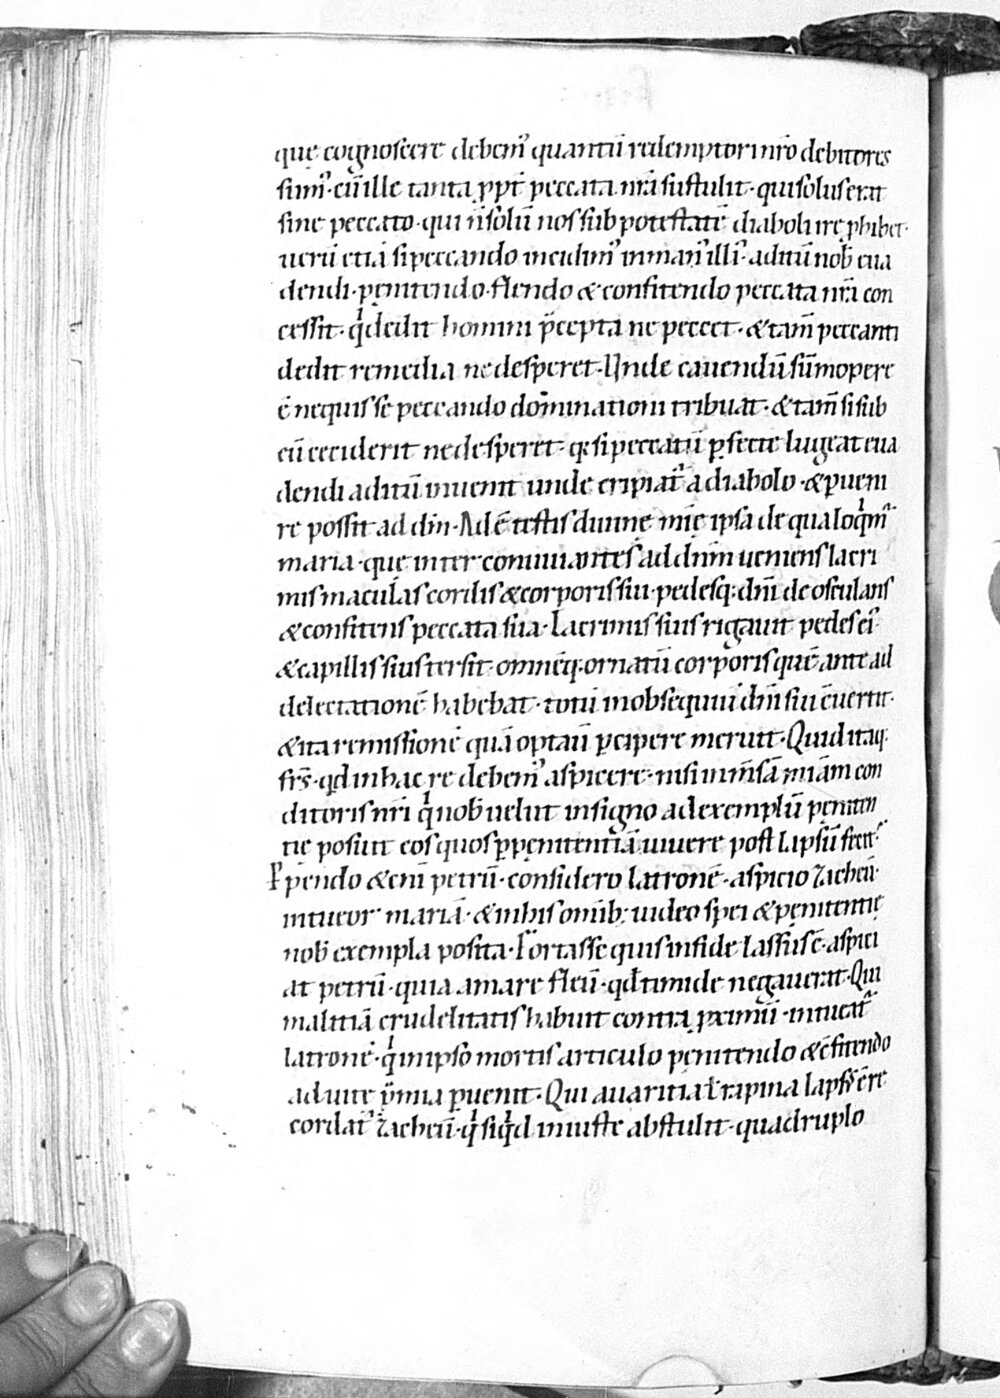 quę cognoscere debem᷒ quantū redemptori nr̄o debitores
sum᷒· cū ille tanta ꝓpt̄ peccata nr̄a sustulit· qui solus erat
sine peccato· qui n̄ solū nos sub potestatē diaboli ire ꝓhibet·
uerū etiā si peccando incidim᷒ in man᷒ illi᷒· aditū nob̄ eua
dendi· pęnitendo· flendo & confitendo peccata nr̄a con
cessit· qͥ dedit homini p̄cepta ne peccet· & tam̄ peccanti
dedit remedia ne desperet· Unde cauendū sūmopere
ē ne quis se peccando dominationi tribuat· & tam̄ si sub
cū ceciderit ne desperet· q; si peccatū ꝑfecte lugeat eua
dendi aditū inuenit unde eripiat᷑ a diabolo· & ꝑueni
re possit ad dm̄· Adē testis diuinę mīę ipsa de qua loqͥm᷑
maria· quę inter conuiuantes ad dnm̄ ueniens lacri
mis maculas cordis & corporis sui· pedesq; dn̄i deosculans
& confitens peccata sua· Lacrimis suis rigauit pedes ei᷒
& capillis suis tersit· omnēq; ornatū corporis quē ante ad
delectationē habebat· totū in obsequiū dn̄i sui c̄uertit·
& ita remissionē quā optau̅ ꝑcipere meruit· Quid itaq;
frs̄· qd̄ in hac re debem᷒ aspicere· nisi inm̄sā mīam con
ditoris nr̄i qͥ nob̄ uelut in signo ad exemplū pęniten
tię posuit eos quos ꝑ pęnitentiā uiuere post lapsū fecit·
Ppendo & enī petrū· considero latronē· aspicio zacheū·
intueor mariā· & in his omīb; uideo spei & pęnitentię
nob̄ exempla posita· Fortasse quis in fide lassus ē· aspici
at petrū· quia amare fleuı̅· qd̄ timide negauerat· Qui
malitiā crudelitatis habuit contra ꝓximū· intueat᷑
latronē· qͥ in ipso mortis articulo pęnitendo & c̄fitendo
ad uitę p̄mia ꝑuenit· Qui auaritia ł rapina lapsus ē re
cordat᷑ zacheū· qͥ siqͥd iniuste abstulit· quadruplo